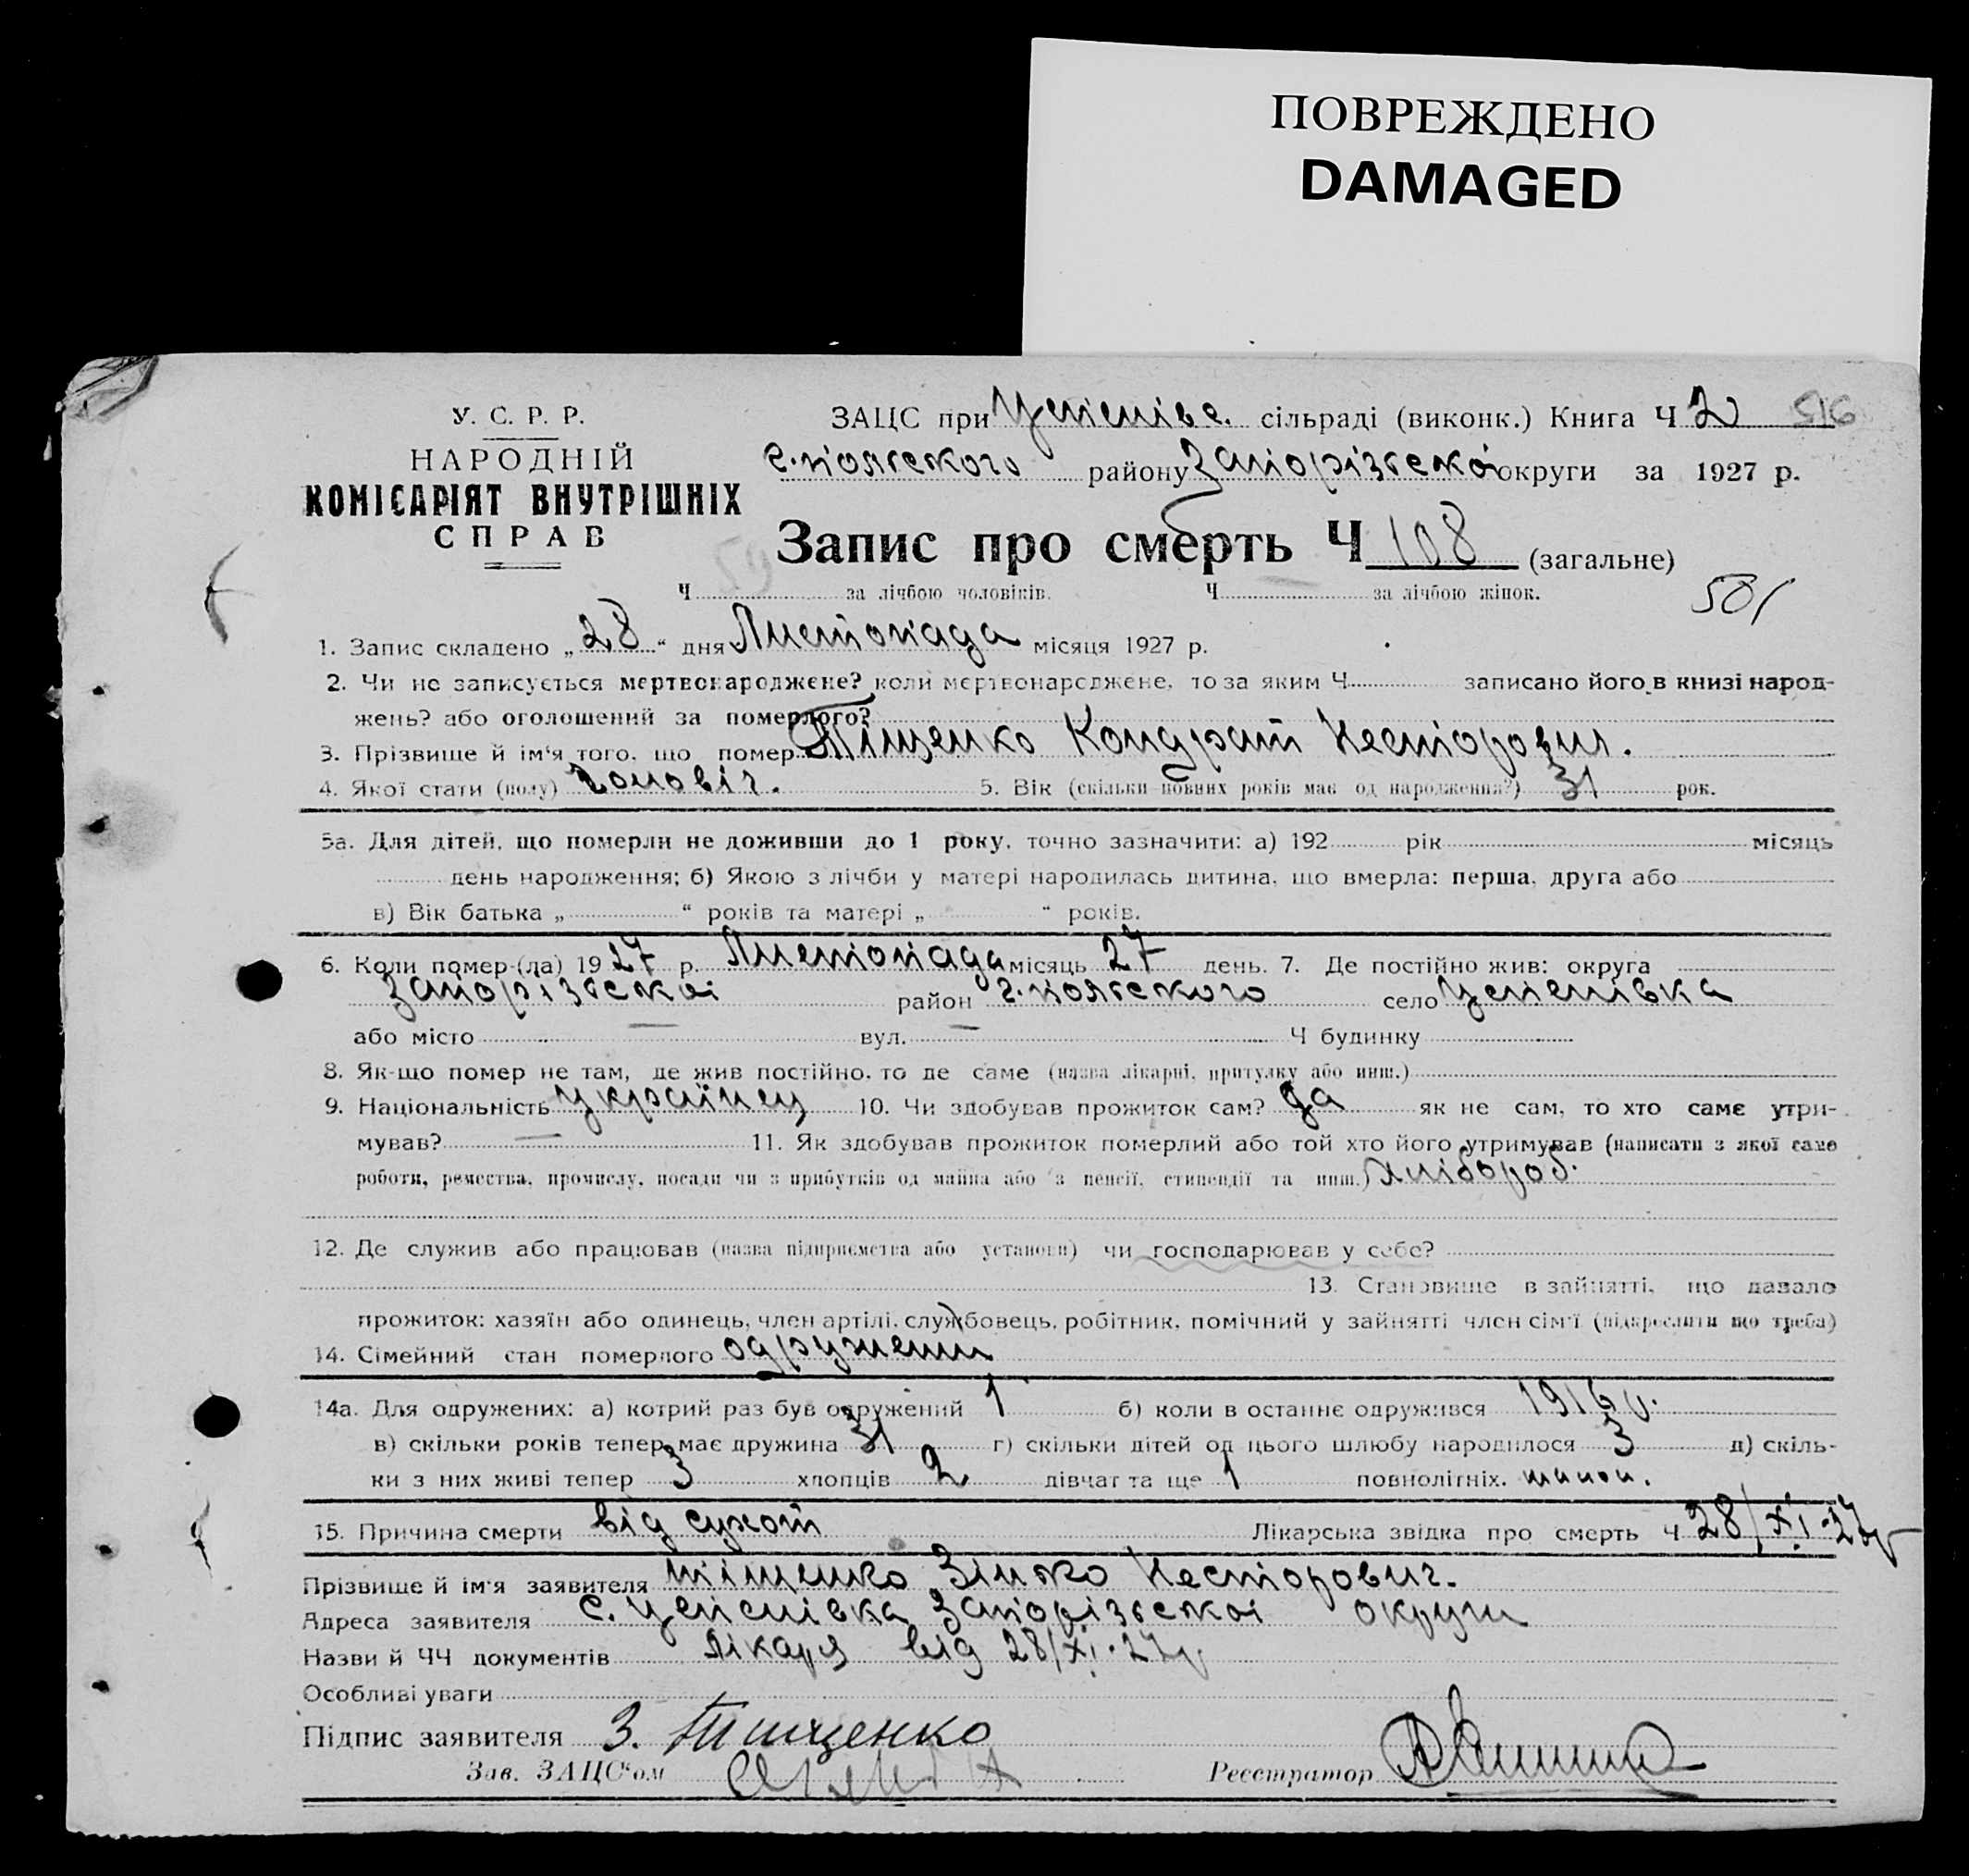 ПОВРЕЖДЕНО
DAMAGED
У. С. Р. Р.
НАРОДНІЙ
КОМІСАРІЯТ ВНУТРІШНІХ
СПРАВ
ЗАЦС при Успенівс. сільраді (виконк.) Книга Ч 2 516
г.-польского району Запорізської округи за 1927 р.
Запис про смерть Ч 108 (загальне)
Ч 59 за лічбою чоловіків. Ч за лічбою жінок.
501
1. Запис складено „28“ дня Листопада місяця 1927 р.
2. Чи не записується мертвонароджене? коли мертвонароджене, то за яким Ч записано його в книзі народ-
жень? або оголошений за померлого?
3. Прізвище й ім'я того, що помер Тіщенко Кондрат Несторович.
4. Якої стати (полу) чоловіч. 5. Вік (скільки повних років має од народження?) 31 рок.
5а. Для дітей, що померли не доживши до 1 року, точно зазначити: а) 192 рік місяць
день народження; б) Якою з лічби у матері народилась дитина, що вмерла: перша, друга або
в) Вік батька „ “ років та матері „ “ років.
6. Коли помер-(ла) 1927 р. Листопада місяць 27 день. 7. Де постійно жив: округа
Запорізської район г.-польского село Успенівка
або місто — вул. — Ч будинку
8. Як-що помер не там, де жив постійно, то де саме (назва лікарні, притулку або инш.)
9. Національність українец 10. Чи здобував прожиток сам? да як не сам, то хто саме утри-
мував? — 11. Як здобував прожиток померлий або той хто його утримував (написати з якої саме
роботи, ремества, промислу, посади чи з прибутків од майна або з пенсії, стипендії та инш.) хлібороб.
12. Де служив або працював (назва підприємства або установи) чи господарював у себе?
13. Становище в зайнятті, що давало
прожиток: хазяїн або одинець, член артілі, службовець, робітник, помічний у зайнятті член сім'ї (підкреслити що треба)
14. Сімейний стан померлого одружени
14а. Для одружених: а) котрий раз був одружений 1 б) коли в останнє одружився 1916 р.
в) скільки років тепер має дружина 31 г) скільки дітей од цього шлюбу народилося 3 д) скіль-
ки з них живі тепер 3 хлопців 2 дівчат та ще 1 повнолітніх.
15. Причина смерти від сухот Лікарська звідка про смерть Ч 28/XI.27р
Прізвище й ім'я заявителя Тіщенко Зінько Несторович.
Адреса заявителя с. Успенівка Запорізської округи
Назви й ЧЧ документів лікаря від 28/XI.27р.
Особливі уваги
Підпис заявителя З. Тищенко
Зав. ЗАЦС'ом Реєстратор